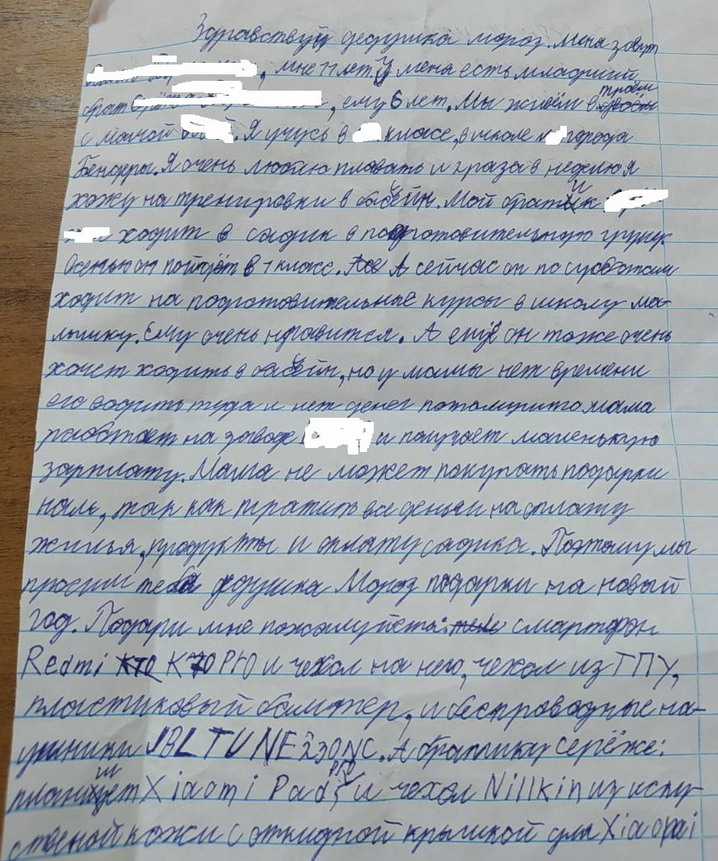 Здравствуй дедушка мороз. Меня зовут
, мне 11 лет У меня есть младший
брат , ему 6 лет. Мы живём втроём
с мамой . Я учусь в классе, в школе города
Бендеры. Я очень люблю плавать и 2 раза в неделю я
хожу на тренировки в басейн. Мой братик
ходит в садик в подготовительную групу.
Осенью он пойдёт в 1 класс. А сейчас он по субботам
ходит на подготовительные курсы в школу ма-
лышку. Ему очень нравится. А ещё он тоже очень
хочет ходить в басейн, но у мамы нет времени
его водить туда и нет денег потомушто мама
работает на заводе и получает маленькую
зарплату. Мама не может покупать подарки
нам, так как тратит все деньги на оплату
жилья, продукты и оплату садика. Поэтому мы
просим тебя дедушка Мороз подарки на новый
год. Подари мне пожалуйста: смартфон
Redmi K70 Pro и чехол на него, чехол из ТПУ,
пластиковый бампер, и беспроводные на-
ушники JBL TUNE 230NC. А братику серёже:
планшет Xiaomi Pad и чехол Nillkin из иску-
ственой кожи с откидной крышкой для